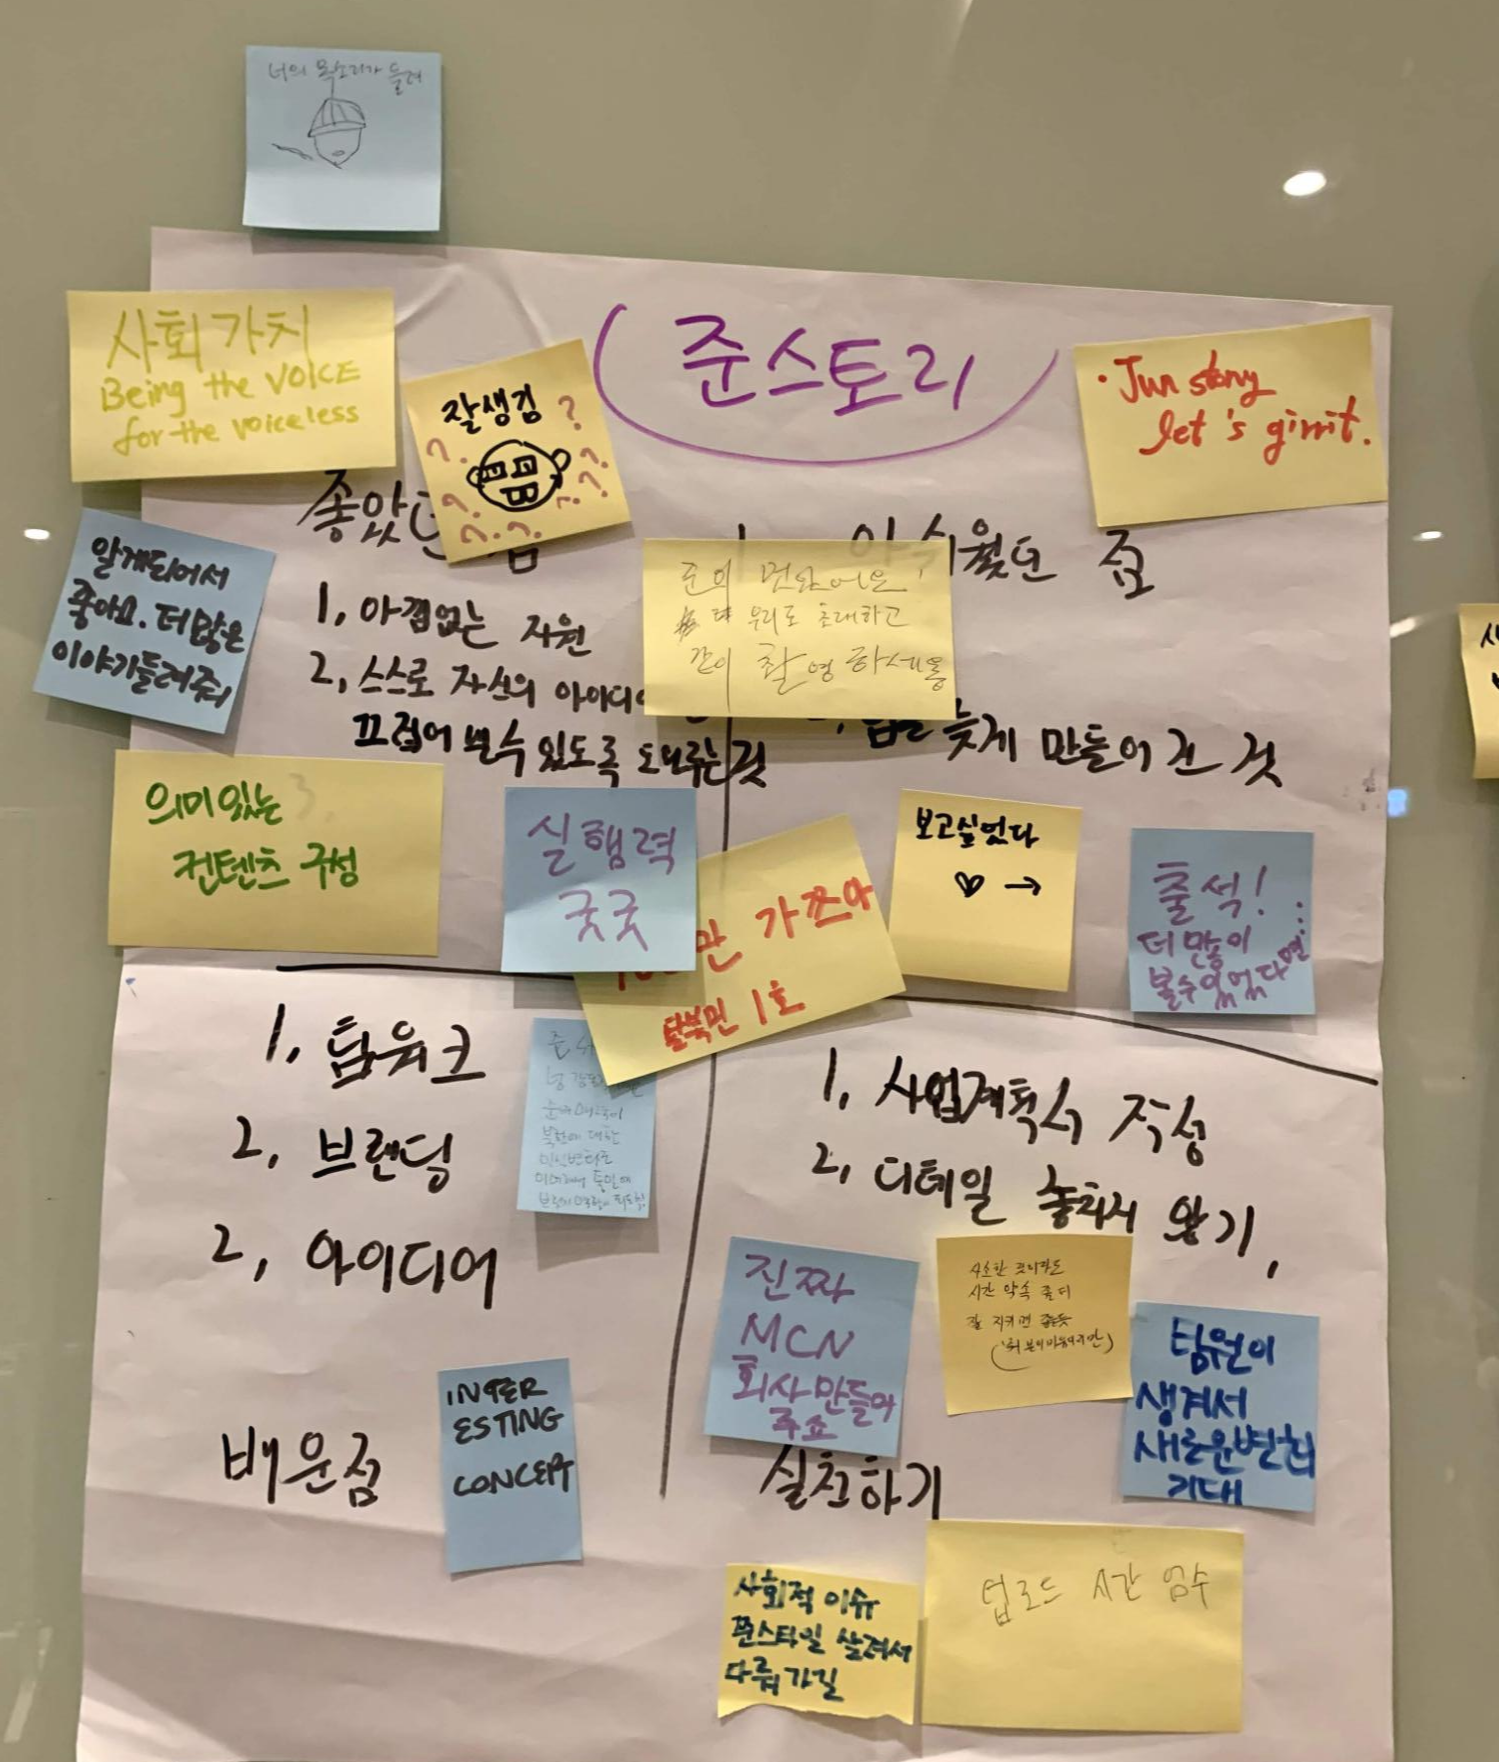 너의 목소리가 들려
사회가치
Being the VOICE
for the voiceless
잘생김
?
준스토리
· Jun story
let's girrit.
좋았던 점
아쉬웠던 점
알게되어서
좋아요. 더많은
이야기들려줘
1, 아낌없는 지원
2, 스스로 자신의 아이디
끄집어 낼수 있도록 도와주는 것
준의
우리도 초대하고
같이 촬영하세용
늦게 만들어 진 것
의미있는
컨텐츠 구성
실행력
굿굿
만 가즈아
탈북민 1호
보고싶었다
♡ →
출석!
더 많이
볼수있었다면..
1, 팀워크
2, 브랜딩
2, 아이디어
북한에 대한
인식변화로
배운점
INTER
ESTING
CONCEPT
1, 사업계획서 작성
2, 디테일 놓치지 않기,
진짜
MCN
회사만들어
주죠
사소한 것이라도
시간 약속 좀 더
잘 지키면 좋을듯
팀원이
생겨서
새로운변화
기대
실천하기
사회적 이슈
준스타일 살려서
다뤄가길
업로드 시간 엄수